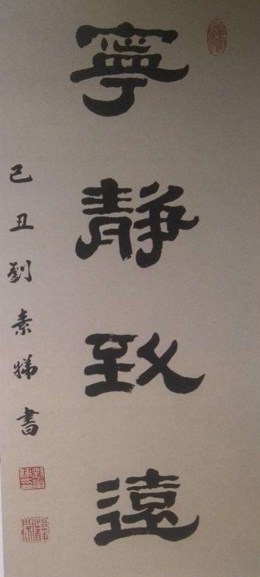 寧靜致遠
己丑劉素娣書